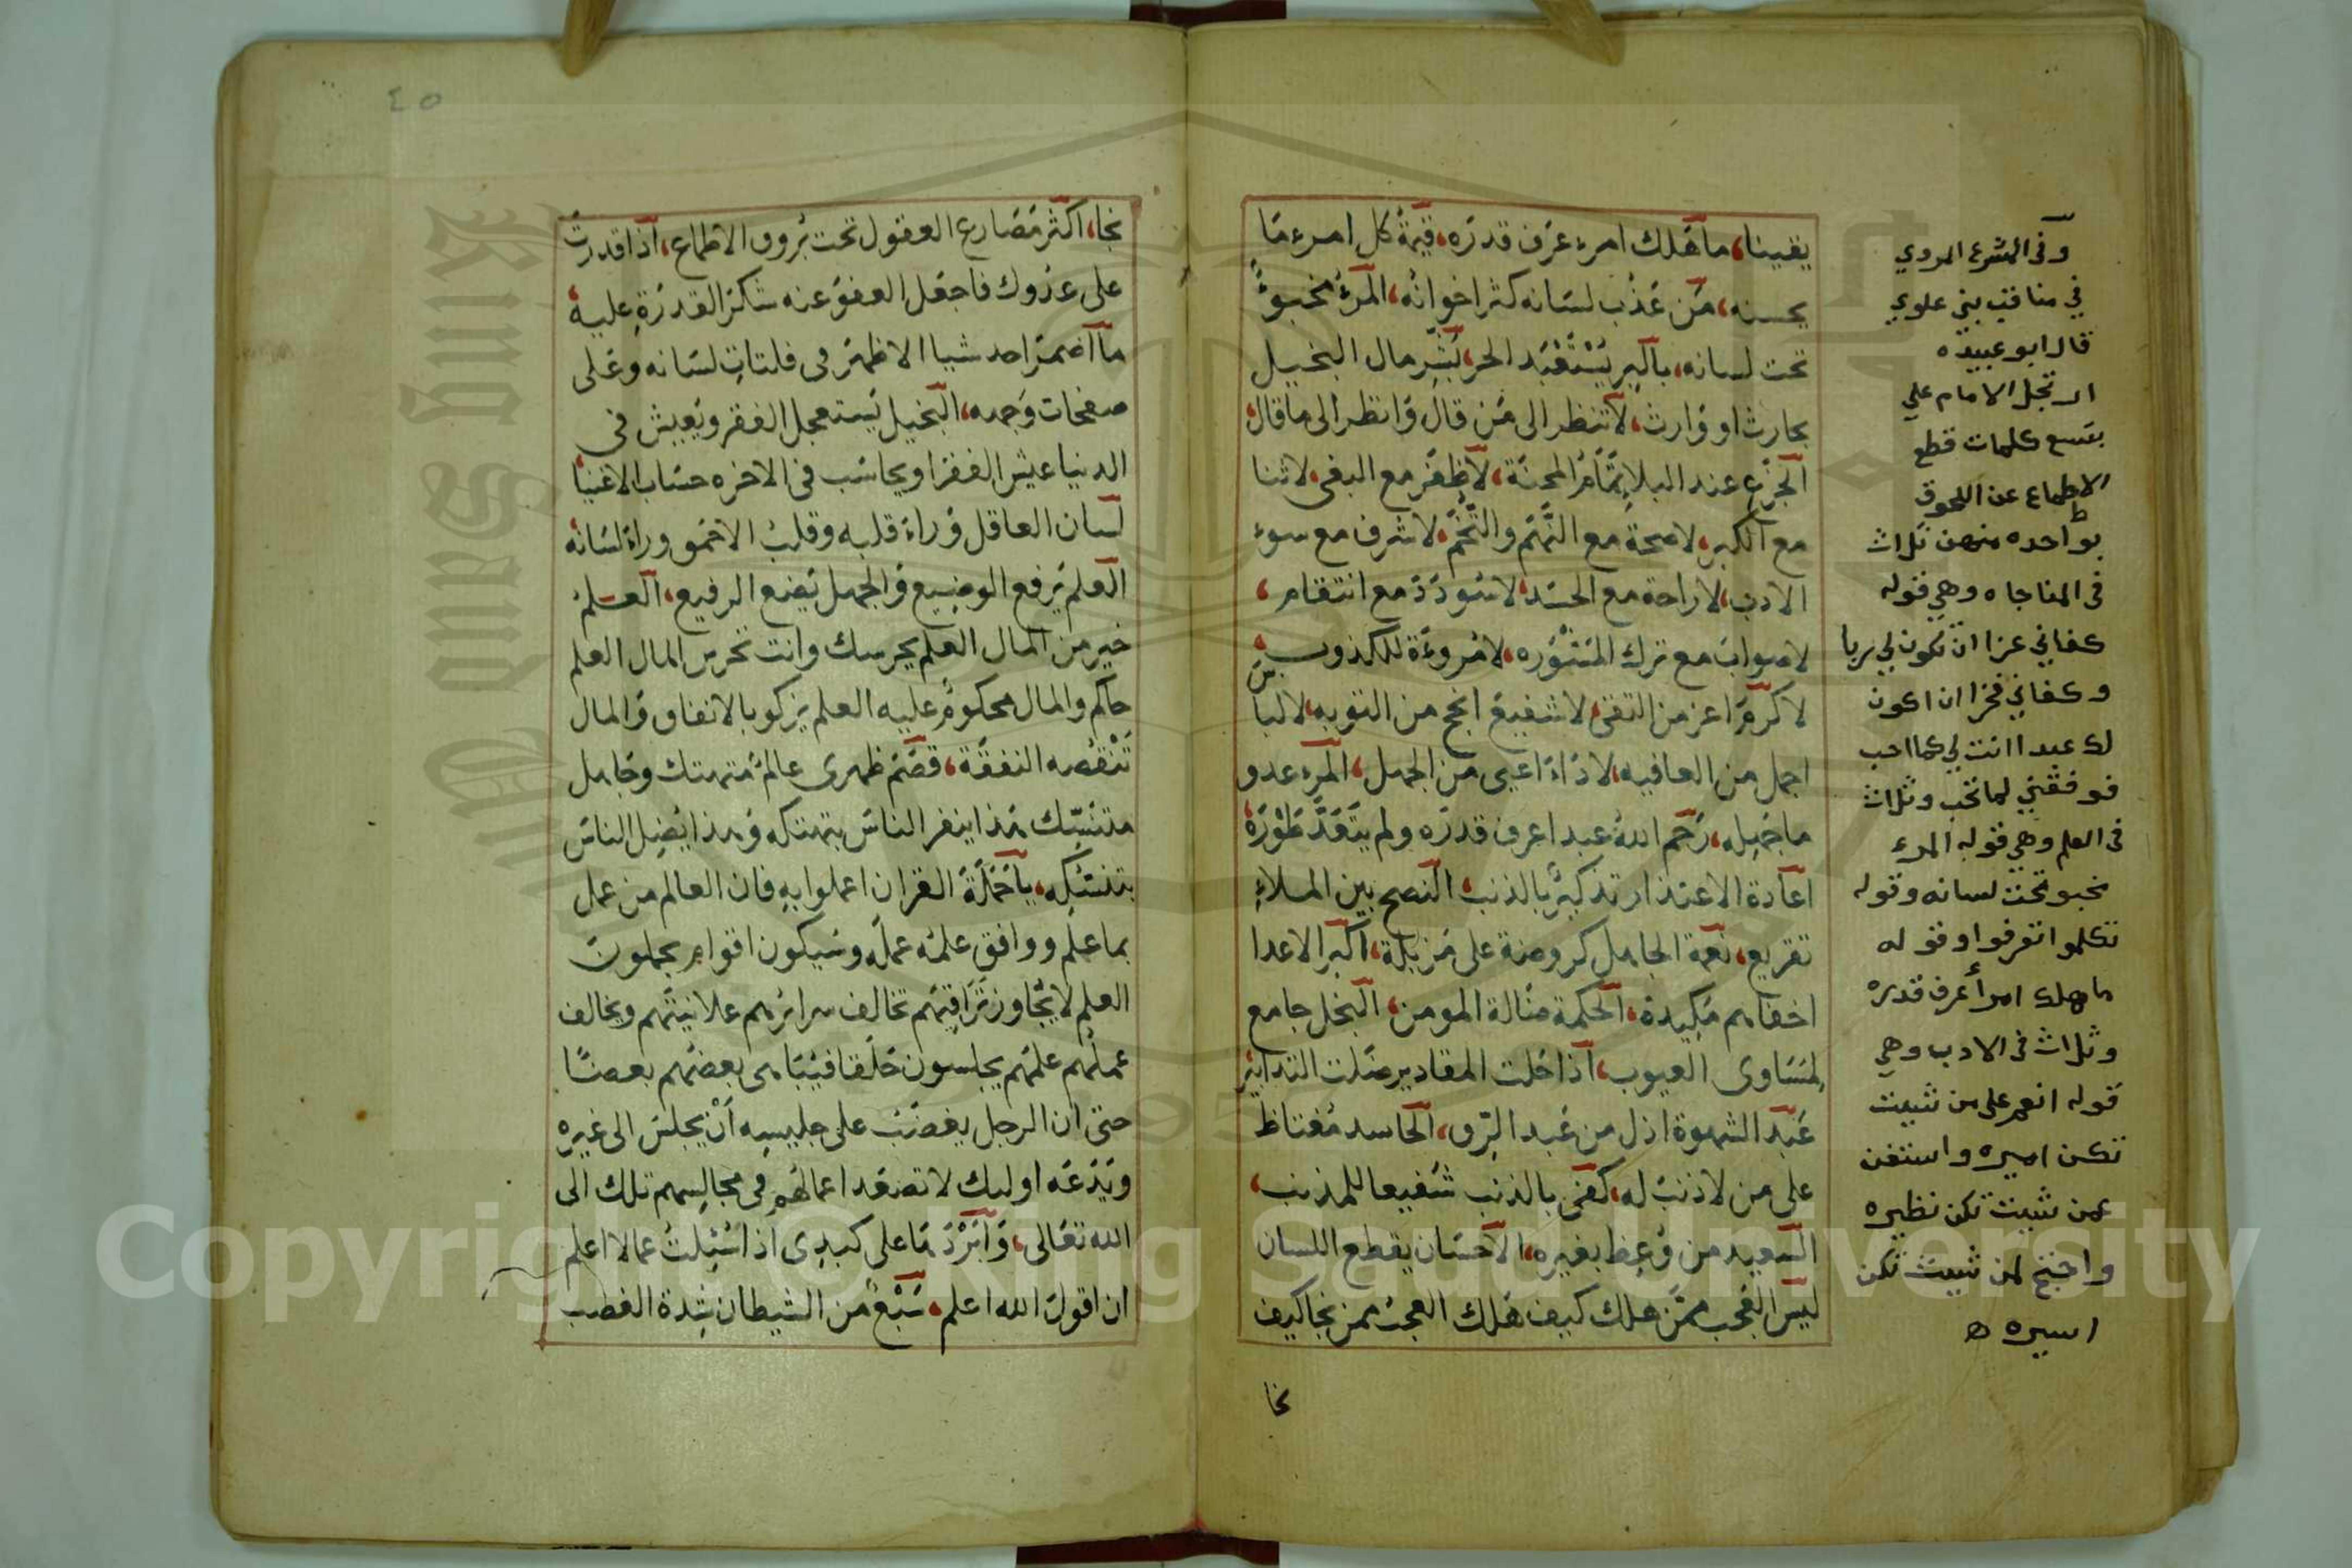 يقينا، ما هلك امرء عرف قدره، قيمة كل امرء ما
يحسنه، من عذب لسانه كثر اخوانه، المرء مخبوء
تحت لسانه، بالبر يستعبد الحر، بشر مال البخيل
بحارث او وارث، لا تنظر الى من قال وانظر الى ما قال،
الجزع عند البلا تمام المحنة، لا ظفر مع البغى، لا ثنا
مع الكبر، لا صحة مع النهم والتخم، لا شرف مع سوء
الادب، لا راحة مع الحسد، لا سودد مع انتقام،
لا صواب مع ترك المشوره، لا مروءة للكذوب،
لا كرم اعز من التقى، لا شفيع انجح من التوبه، لا لباس
اجمل من العافيه، لا داء اعيى من الجهل، المرء عدو
ما جهله، رحم الله عبدا عرف قدره ولم يتعد طوره،
اعادة الاعتذار تذكير بالذنب، النصح بين الملاء
تقريع، نعمة الجاهل كروضة على مزبلة، اكبر الاعدا
اخفاهم مكيدة، الحكمة ضالة المومن، البخل جامع
لمساوى العيوب، اذا حلت المقادير ضلت التدابير
عبد الشهوة اذل من عبد الرق، الحاسد مغتاظ
على من لا ذنب له، كفى بالذنب شفيعا للمذنب،
السعيد من وعظ بغيره، الاحسان يقطع اللسان
ليس العجب ممن هلك كيف هلك العجب ممن نجا كيف
نجا
وفى المشرع المروي
في مناقب بني علوي
قال ابو عبيده
ارتجل الامام علي
بتسع كلمات قطع
الاطماع عن اللحوق
بواحده منهن ثلاث
فى المناجاه وهي قوله
كفاني عزا ان تكون لي ربا
وكفاني فخرا ان اكون
لك عبدا انت لي كما احب
فوفقني لما تحب وثلاث
فى العلم وهي قوله المرء
مخبو تحت لسانه وقوله
تكلموا تعرفوا وقوله
ما هلك امرأ عرف قدره
وثلاث فى الادب وهي
قوله انعم على من شيت
تكن اميره واستغن
عمن شيت تكن نظيره
واحتج لمن شيت تكن
اسيره ه
٤٥
نجا، اكثر مصارع العقول تحت بروق الاطماع، اذا قدرت
على عدوك فاجعل العفو عنه شكر القدرة عليه،
ما اضمر احد شيا الا ظهر فى فلتات لسانه وعلى
صفحات وجهه، البخيل يستعجل الفقر ويعيش فى
الدنيا عيش الفقرا ويحاسب فى الاخره حساب الاغنيا،
لسان العاقل وراء قلبه وقلب الاحمق وراء لسانه،
العلم يرفع الوضيع والجهل يضع الرفيع، العلم
خير من المال العلم يحرسك وانت تحرس المال العلم
حاكم والمال محكوم عليه العلم يزكو بالانفاق والمال
تنقصه النفقة، قصم ظهرى عالم متهتك وجاهل
متنسك هذا ينفر الناس بتهتكه وهذا يضل الناس
بتنسكه، يا حملة القران اعملوا به فان العالم من عمل
بما علم ووافق علمه عمله وسيكون اقوام يحملون
العلم لا يجاوز تراقيهم تخالف سرائرهم علانيتهم ويخالف
عملهم علمهم يجلسون حلقا فيتباهى بعضهم بعضا
حتى ان الرجل يغضب على جليسه ان يجلس الى غيره
ويدعه اوليك لا تصعد اعمالهم فى مجالسهم تلك الى
الله تعالى، وابردها على كبدى اذا سئلت عما لا اعلم
ان اقول الله اعلم، سبع من الشيطان شدة الغضب
Copyright © King Saud University